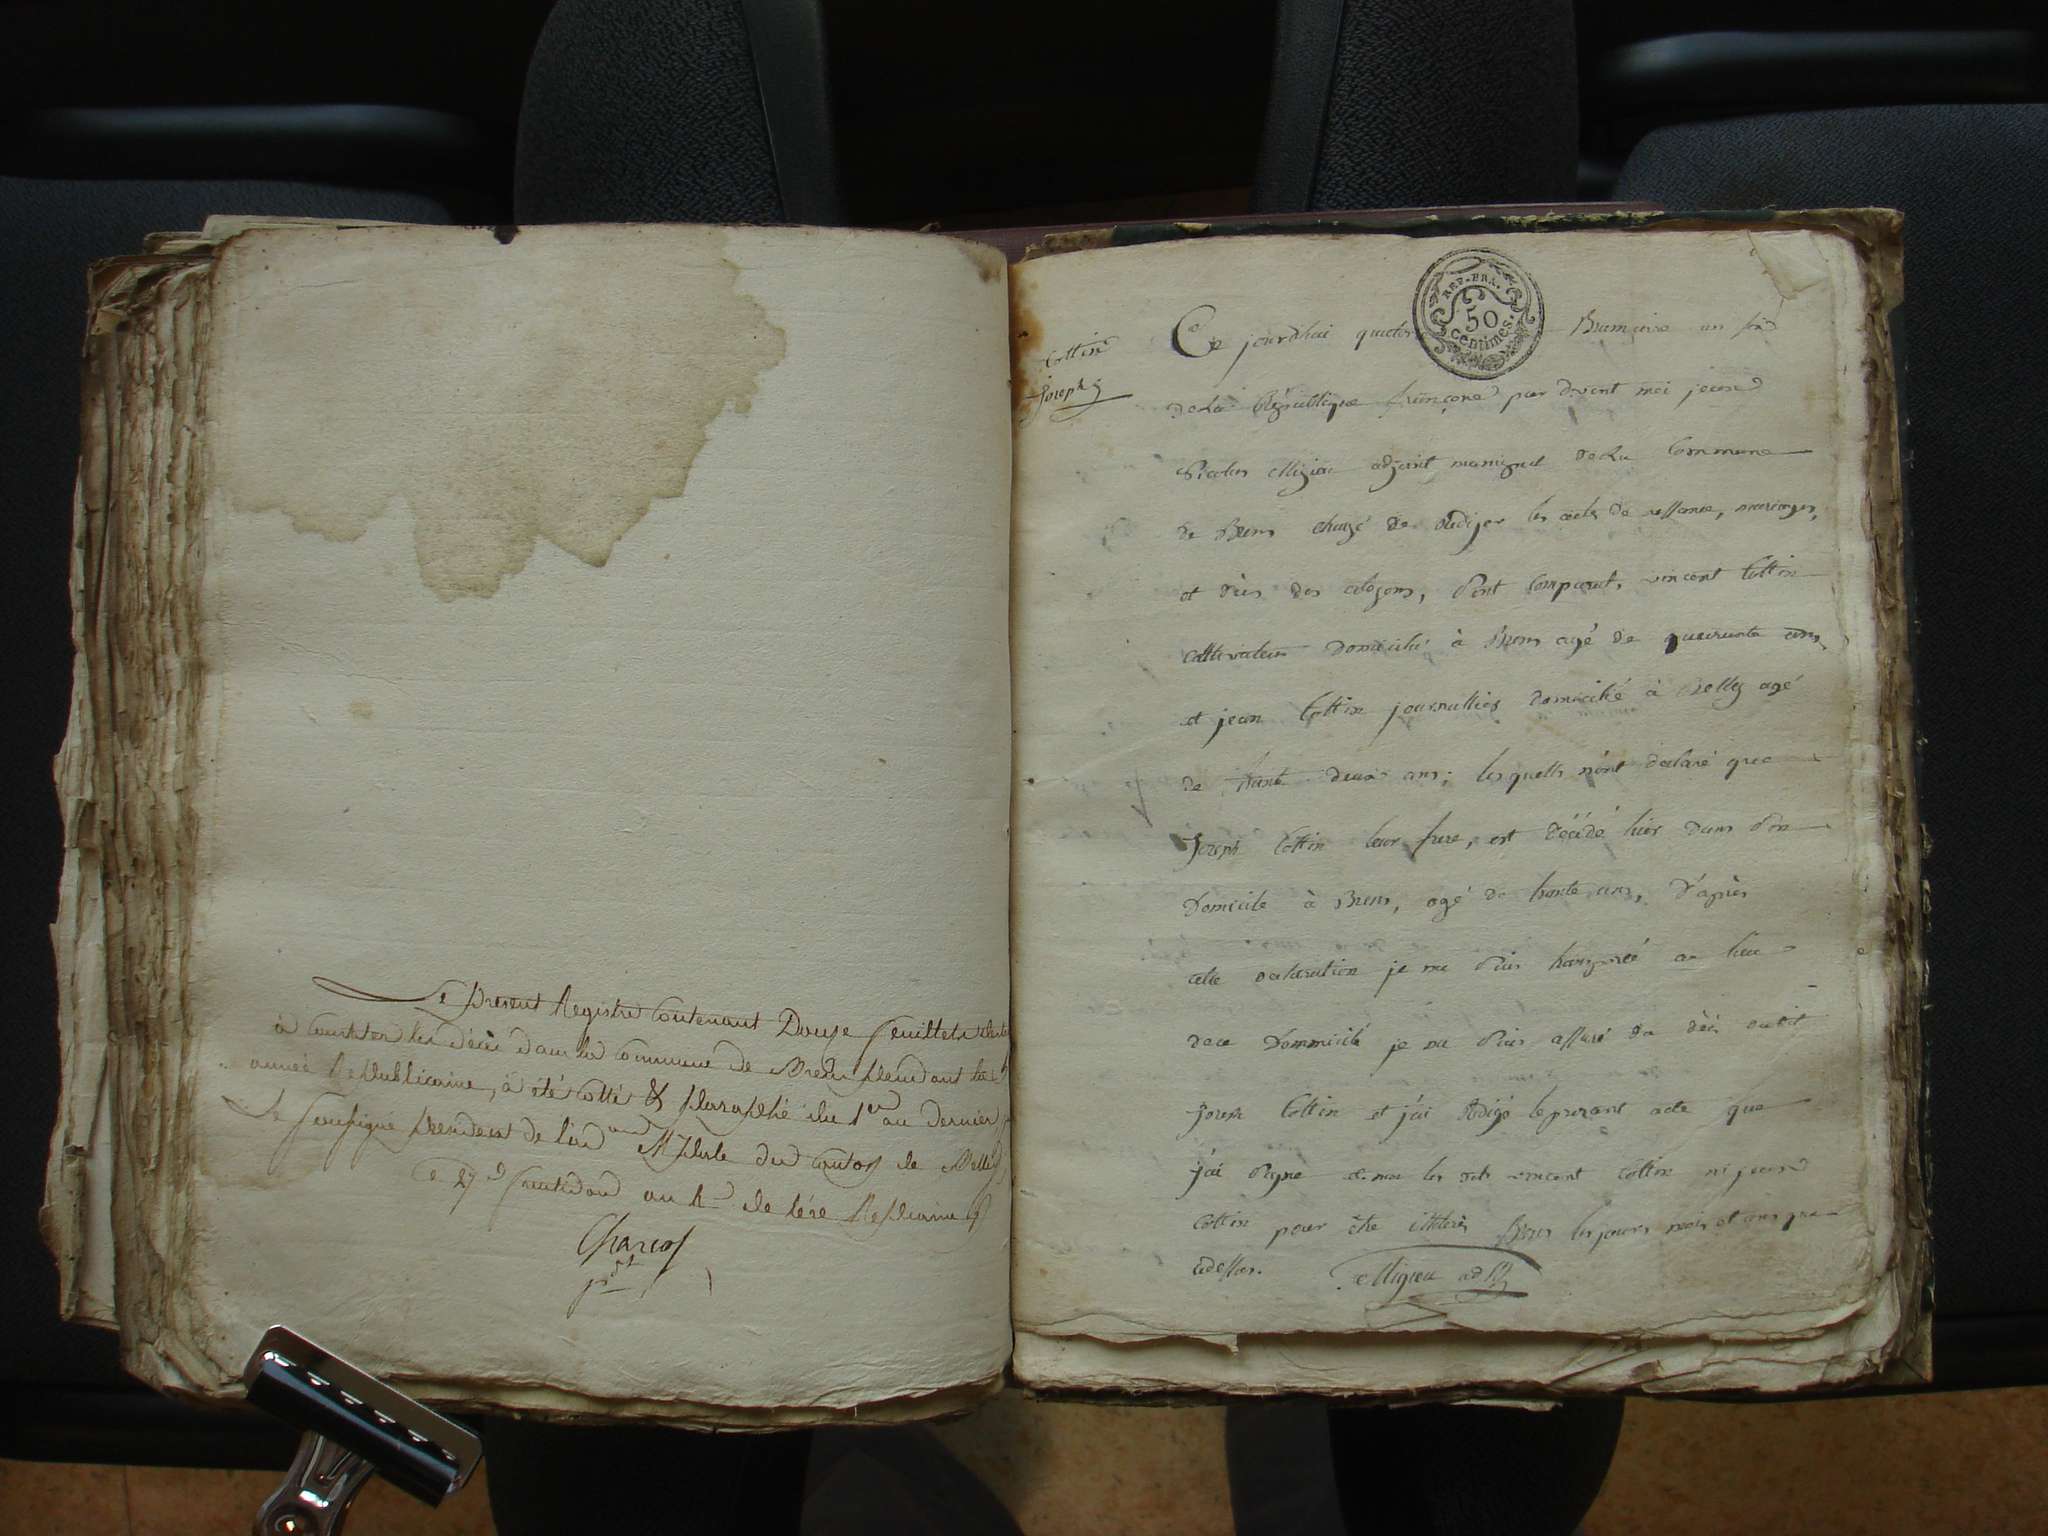 Le present Registre Contenant Douze feuillets
à Constater les décès dans la Commune de Brens pendant la
année Republicaine, à été cotté & paraphé du 1er au dernier
Le soussigné président de l'adon Mplale du Canton de Belley
Ce 27e fructidor an de l'ère Replicaine
Charcot
pdt
Cottin
Joseph
REP. FRA.
50
Centimes.
Ce jourdhui Brumaire an
de La République françoise par devant moi jean
Nicolas Migieu adjoint municipal de La Commune
de Brens chargé de Rédiger les actes de nessance, mariages,
et décès des citoyens, sont comparuts, vincent Cottin
cultivateur domicilié à Brens agé de quarante ans,
et jean Cottin journallier domicilié à Belley agé
de trante deux ans; lesquells m'ont déclaré que
Joseph Cottin leur frere, est décédé hier dans son
Domicile à Brens, agé de trente ans, D'après
cette déclaration je me suis transporté au lieu
de ce Dommicile je me suis assuré du décès dudit
Joseph Cottin et j'ai Rédigé le présant acte que
j'ai signé et non les dits vincent Cottin ni jean
Cottin pour être illiterés Brens les jours mois et ans que
cidessus. Migieu adj